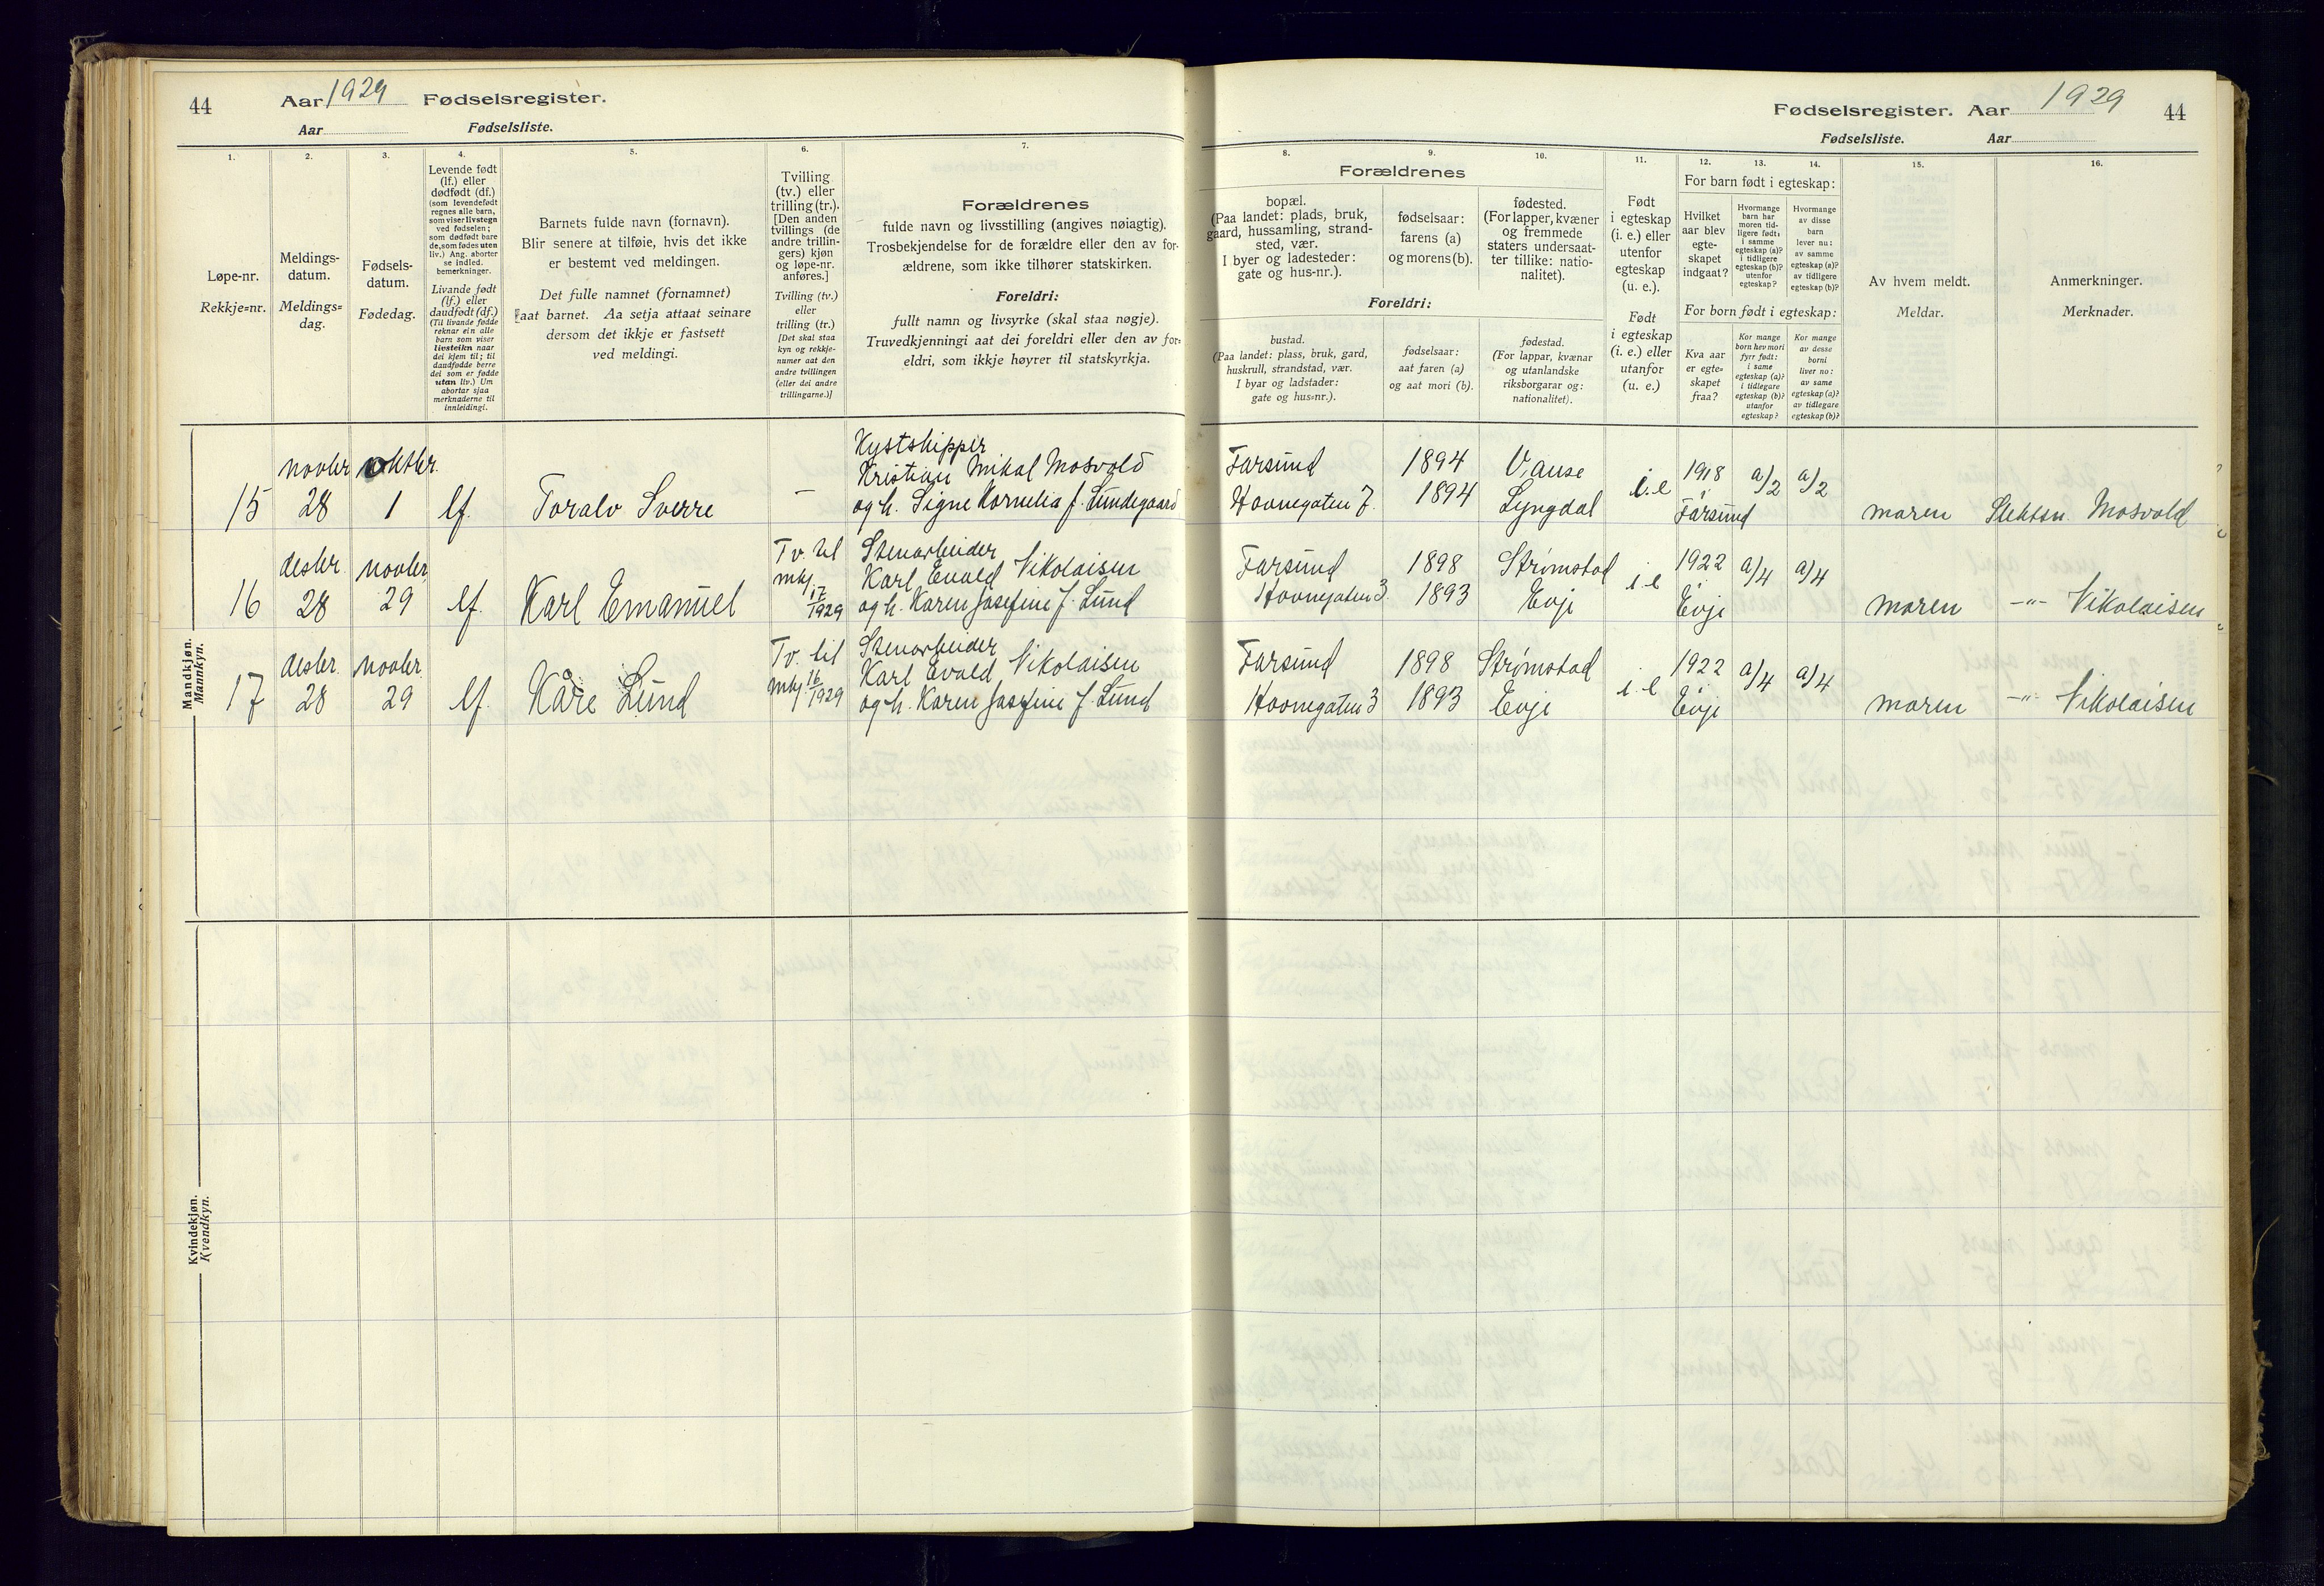 44
Aar 1929 Fødselsregister.
Aar Fødselsliste.
1.
2.
3.
4.
5.
6.
7.
Løpe-nr.
Rekkje=nr.
Meldings-
datum.
Meldings=
dag.
Fødsels-
datum.
Fødedag.
Levende født
(lf.) eller
dødfødt (df.)
(som levendefødt
regnes alle barn,
som viser livstegn
ved fødselen;
som dødfødt bare
de, som fødes uten
liv.) Ang. aborter
se indled.
bemerkninger.
Livande født
(lf.) eller
daudfødt (df.)
(Til livande fødde
reknar ein alle
barn som viser
livsteikn naar
dei kjem til; til
daudfødde berre
dei som er fødde
utan liv.) Um
abortar sjaa
merknaderne til
innleidingi.
Barnets fulde navn (fornavn).
Blir senere at tilføie, hvis det ikke
er bestemt ved meldingen.
Det fulle namnet (fornamnet)
aat barnet. Aa setja attaat seinare
dersom det ikkje er fastsett
ved meldingi.
Tvilling
(tv.) eller
trilling (tr.).
[Den anden
tvillings (de
andre trillin-
gers) kjøn
og løpe-nr.
anføres.]
Tvilling (tv.)
eller
trilling (tr.)
[Det skal staa
kyn og rekkje-
numer aat den
andre tvillingen
(eller dei andre
trillingarne.)]
Forældrenes
fulde navn og livsstilling (angives nøiagtig).
Trosbekjendelse for de forældre eller den av for-
ældrene, som ikke tilhører statskirken.
Foreldri:
fullt namn og livsyrke (skal staa nøgje).
Truvedkjenningi aat dei foreldri eller den av for-
eldri, som ikkje høyrer til statskyrkja.
Mandkjøn.
Mannkyn.
15
novbr
28
oktbr.
1
lf.
Toralv Sverre
–
Kystskipper
Kristian Mikal Mosvold
og h. Signe Kornelia f. Lundegaard
16
desbr.
28
novbr.
29
lf.
Karl Emanuel
Tv. til
mkj.
17
1929
Stenarbeider
Karl Evald Nikolaisen
og h. Karen Josefine f. Lund
17
desbr.
28
novbr.
29
lf.
Kåre Lund
Tv. til
mkj. 16
1929
Stenarbeider
Karl Evald Nikolaisen
og h. Karen Josefine f. Lund
Kvindekjøn.
Kvendkyn.
Fødselsregister. Aar 1929
44
Fødselsliste. Aar
8.
9.
10.
11.
12.
13.
14.
15.
16.
Forældrenes
bopæl.
(Paa landet: plads, bruk,
gaard, hussamling, strand-
sted, vær.
I byer og ladesteder:
gate og hus-nr.).
fødselsaar:
farens (a)
og morens (b).
fødested.
(For lapper, kvæner
og fremmede
staters undersaat-
ter tillike: natio-
nalitet).
Foreldri:
bustad.
(Paa landet: plass, bruk, gard,
huskrull, strandstad, vær.
I byar og ladstader:
gate og hus=nr.).
fødselsaar:
aat faren (a)
og aat mori (b).
fødestad.
(For lappar, kvænar
og utanlandske
riksborgarar og:
nationalitet).
Født
i egteskap
(i. e.) eller
utenfor
egteskap
(u. e.).
Født
i egteskap
(i. e.) eller
utanfor
(u. e.)
For barn født i egteskap:
Hvilket
aar blev
egte-
skapet
indgaat?
Hvormange
barn har
moren tid-
ligere født:
i samme
egteskap (a)?
i tidligere
egteskap (b)?
utenfor
egteskap?
Hvormange
av disse
barn
lever nu:
av samme
egteskap (a)?
av tidligere
egteskap (b)?
For born født i egteskap:
Kva aar
er egte=
skapet
fraa?
Kor mange
born hev mori
fyrr født:
i same
egteskap (a)?
i tidlegare
egteskap (b)?
utanfor
egteskap?
Kor mange
av desse
borni
liver no:
av same
egteskap (a)?
av tidlegare
egteskap (b)?
Av hvem meldt.
Meldar.
Anmerkninger.
Merknader.
Farsund
Hovnegaten 7.
1894
1894
Vanse
Lyngdal
i.e
1918
Farsund
a/2
a/2
moren
Slektsn. Mosvold
Farsund
Hovnegaten 3.
1898
1893
Strømstad
Evje
i e
1922
Evje
a/4
a/4
moren
–"– Nikolaisen
Farsund
Hovnegaten 3
1898
1893
Strømstad
Evje
i. e
1922
Evje
a/4
a/4
moren
–"– Nikolaisen